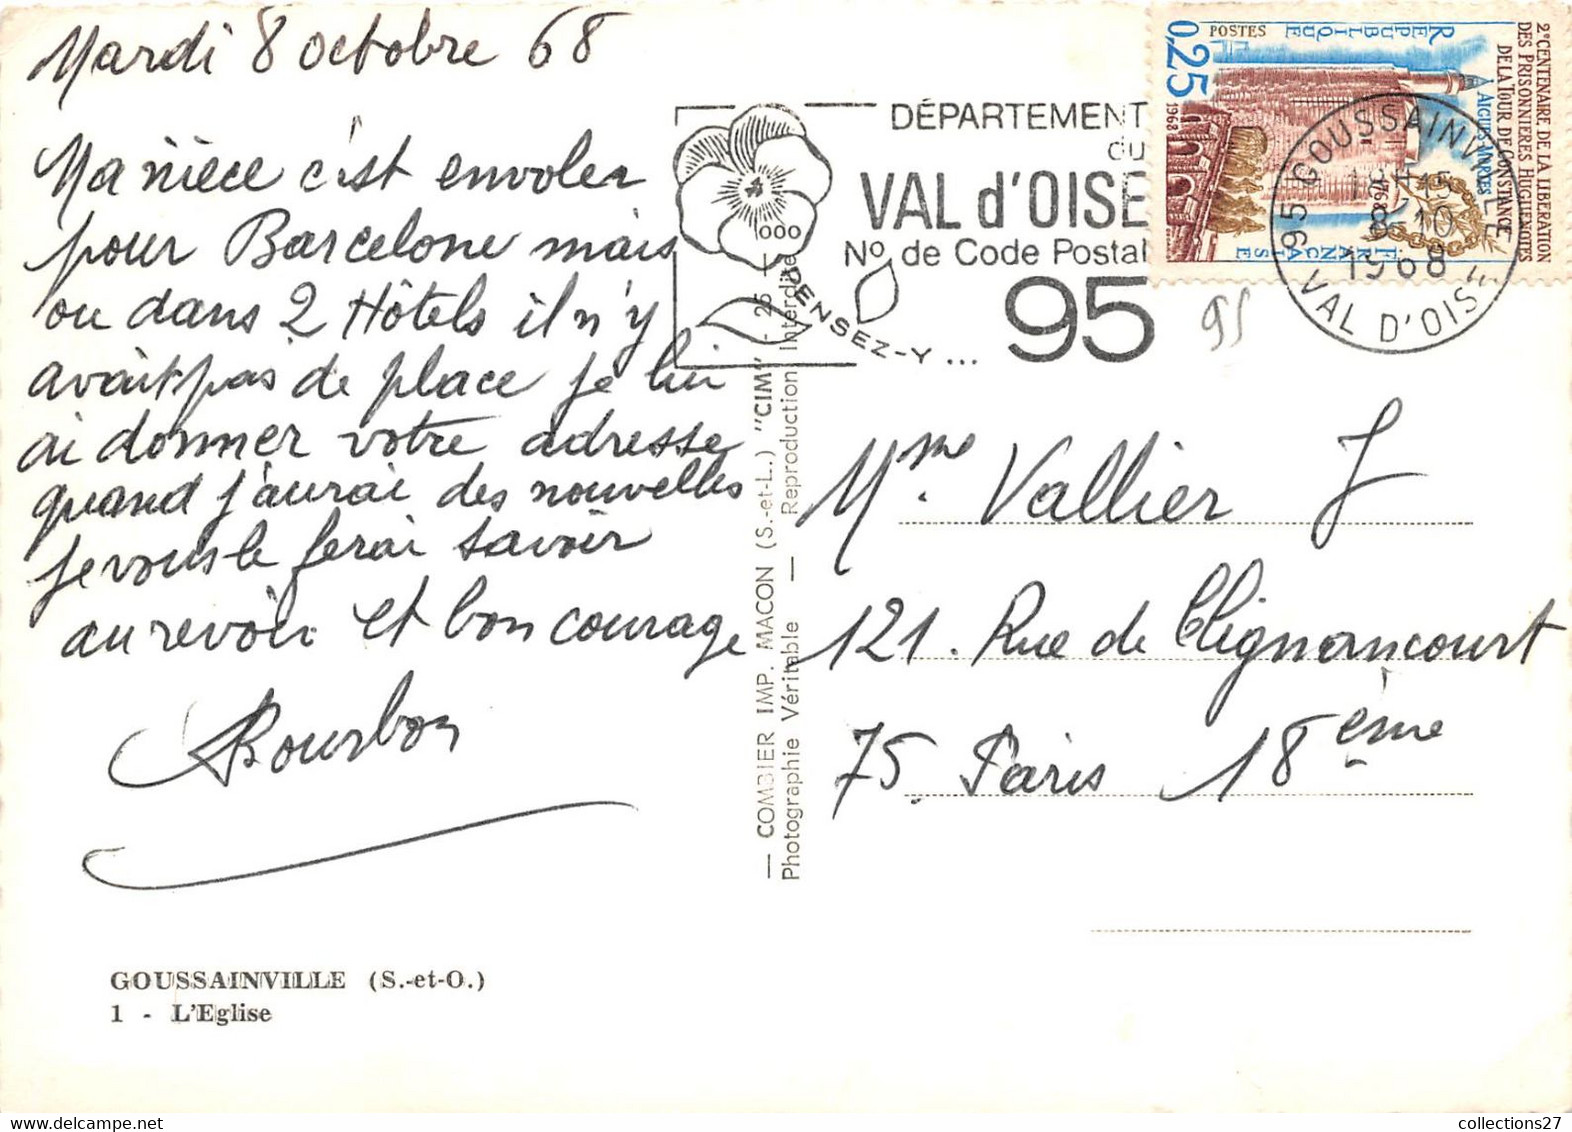 Mardi 8 octobre 68
Ma nièce c'est envoler
pour Barcelone mais
ou dans 2 Hôtels il n'y
avait pas de place je lui
ai donner votre adresse
quand j'aurai des nouvelles
je vous le ferai savoir
au revoir et bon courage
Bourbon
GOUSSAINVILLE (S.-et-O.)
1 - L'Eglise
— COMBIER IMP. MACON (S.-et-L.) "CIM"
Photographie Véritable — Reproduction Interdite
DÉPARTEMENT
du
VAL d'OISE
N° de Code Postal
95
1000
PENSEZ-Y ...
2e CENTENAIRE DE LA LIBÉRATION
DES PRISONNIÈRES HUGUENOTES
DE LA TOUR DE CONSTANCE
AIGUES-MORTES
REPUBLIQUE
FRANÇAISE
POSTES
0,25
1968
95 GOUSSAINVILLE
8-10
1968
VAL D'OISE
95
Mme. Vallier J
121. Rue de Clignancourt
75. Paris 18ème
collections27